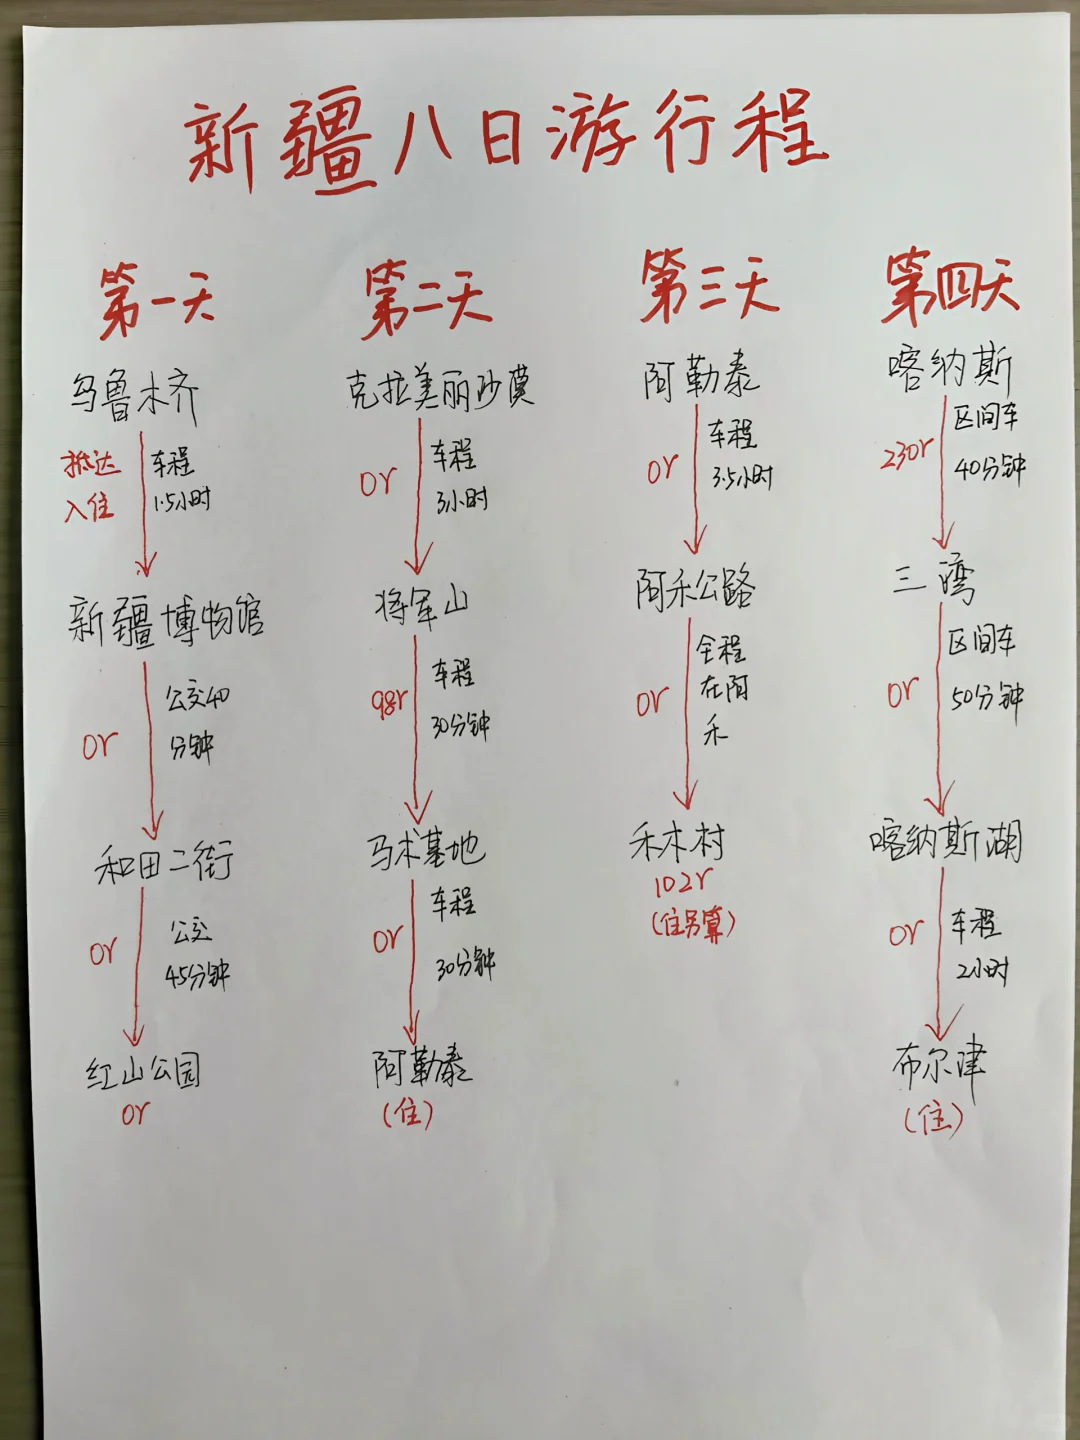 新疆八日游行程
第一天
乌鲁木齐
抵达
入住
车程
1.5小时
新疆博物馆
0r
公交40
分钟
和田二街
0r
公交
45分钟
红山公园
0r
第二天
克拉美丽沙漠
0r
车程
3小时
将军山
98r
车程
30分钟
马术基地
0r
车程
30分钟
阿勒泰
(住)
第三天
阿勒泰
0r
车程
3.5小时
阿禾公路
0r
全程
在阿
禾
禾木村
102r
(住另算)
第四天
喀纳斯
230r
区间车
40分钟
三湾
0r
区间车
50分钟
喀纳斯湖
0r
车程
2小时
布尔津
(住)